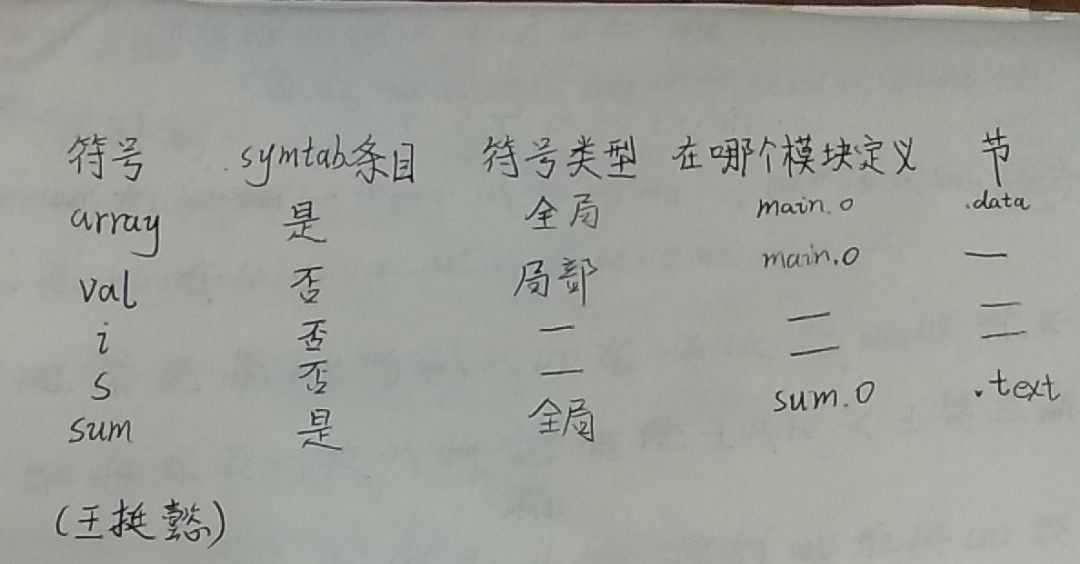 符号 .symtab条目 符号类型 在哪个模块定义 节
array 是 全局 main.o .data
val 否 局部 main.o —
i 否 — — —
s 否 — — —
sum 是 全局 sum.o .text
(王挺懿)